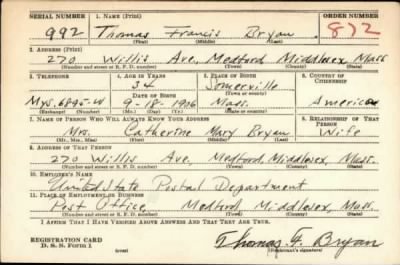 SERIAL NUMBER 1. NAME (Print) ORDER NUMBER
992 Thomas Francis Bryan 872
(First) (Middle) (Last)
2. ADDRESS (Print)
270 Willis Ave, Medford Middlesex Mass
(Number and street or R. F. D. number) (Town) (County) (State)
3. TELEPHONE 4. AGE IN YEARS 5. PLACE OF BIRTH 6. COUNTRY OF CITIZENSHIP
34 Somerville
DATE OF BIRTH (Town or county)
Mys. 6895-W 9-18-1906 Mass. America
(Exchange) (Number) (Mo.) (Day) (Yr.) (State or country)
7. NAME OF PERSON WHO WILL ALWAYS KNOW YOUR ADDRESS 8. RELATIONSHIP OF THAT PERSON
Mrs. Catherine Mary Bryan Wife
(Mr., Mrs., Miss) (First) (Middle) (Last)
9. ADDRESS OF THAT PERSON
270 Willis Ave, Medford, Middlesex, Mass.
(Number and street or R. F. D. number) (Town) (County) (State)
10. EMPLOYER'S NAME
United State Postal Department
11. PLACE OF EMPLOYMENT OR BUSINESS
Post Office, Medford Middlesex, Mass.
(Number and street or R. F. D. number) (Town) (County) (State)
I AFFIRM THAT I HAVE VERIFIED ABOVE ANSWERS AND THAT THEY ARE TRUE.
REGISTRATION CARD Thomas F. Bryan
D. S. S. FORM 1 (over) (Registrant's signature)